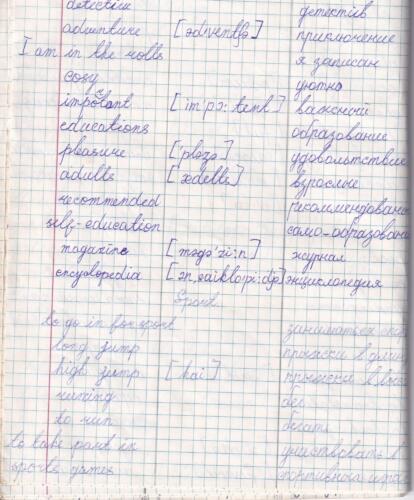 detective детектив
adventure [əd'ventʃə] приключение
I am in the rolls я записан
cosy уютно
impotant [im'pɔ:tent] важный
educations образование
pleasure ['pleʒə] удовольствие
adults ['ædelts] взрослые
recommended рекоммендовано
self-education само-образован
magazine [mægə'zi:n] журнал
encyclopedia энциклопедия
Sport.
to go in for sport заниматься
long jump прыжки в длин
high jump [hai] прыжки в
running бег
to run бегать
to take part in учавствовать в
sports games